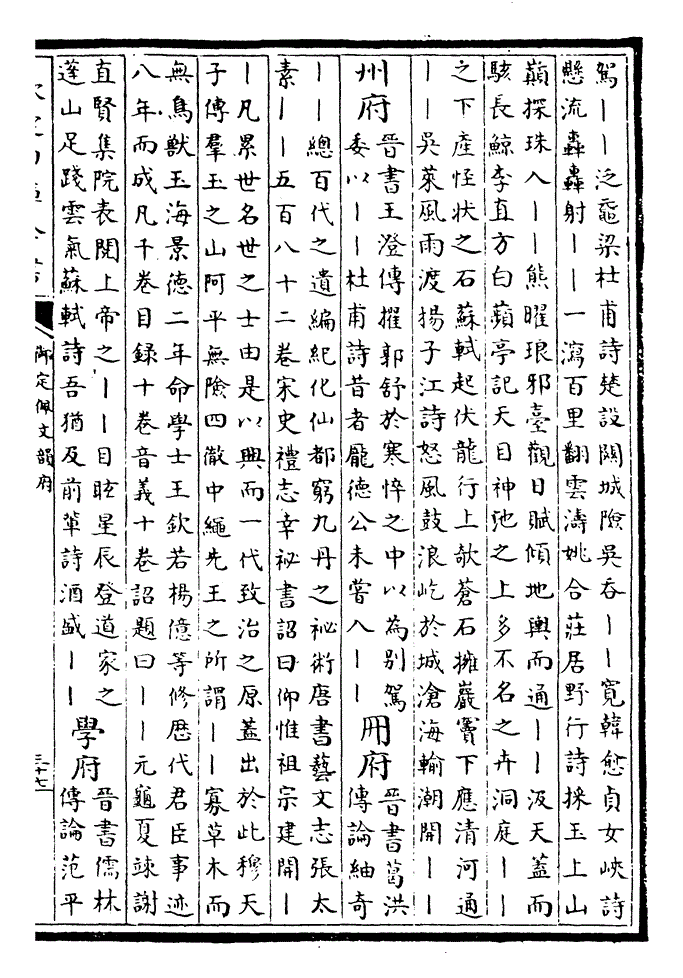 駕｜｜泛黿梁杜甫詩楚設關城險吳吞｜｜寛韓愈貞女峽詩
懸流轟轟射｜｜一瀉百里翻雲濤姚合莊居野行詩採玉上山
巔探珠入｜｜熊曜琅邪臺觀日賦傾地輿而通｜｜汲天蓋而
駭長鯨李直方白蘋亭記天目神池之上多不名之卉洞庭｜｜
之下產怪狀之石蘇軾起伏龍行上欹蒼石擁巖竇下應清河通
｜｜吳萊風雨渡揚子江詩怒風鼓浪屹於城滄海輸潮開｜｜
州府
晉書王澄傳擢郭舒於寒悴之中以為别駕
委以｜｜杜甫詩昔者龐德公未嘗入｜｜
冊府
晉書葛洪
傳論紬奇
｜｜總百代之遺編紀化仙都窮九丹之祕術唐書藝文志張太
素｜｜五百八十二卷宋史禮志幸祕書詔曰仰惟祖宗建開｜
｜凡累世名世之士由是以興而一代致治之原蓋出於此穆天
子傳羣玉之山阿平無險四徹中繩先王之所謂｜｜寡草木而
無鳥獸玉海景德二年命學士王欽若楊億等修歴代君臣事迹
八年而成凡千卷目録十卷音義十卷詔題曰｜｜元龜夏竦謝
直賢集院表閱上帝之｜｜目眩星辰登道家之
蓬山足踐雲氣蘇軾詩吾猶及前輩詩酒盛｜｜
學府
晉書儒林
傳論范平
御定佩文韻府
三十七